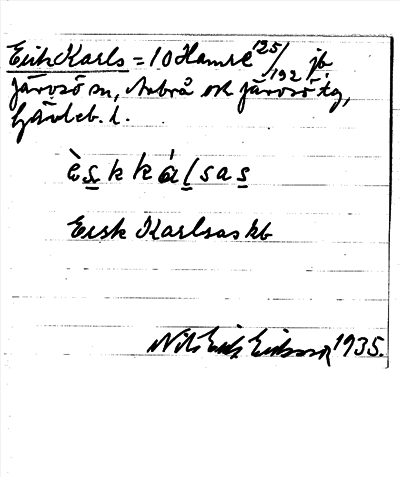 Erik Karls = 10 Hamre 125/192 jb
Järvsö sn, Arbrå och Järvsö tg,
Gävleb. l.
È s k k á l s a s
Ersk Karlsas kb
Nils Erik Eriksson 1935.